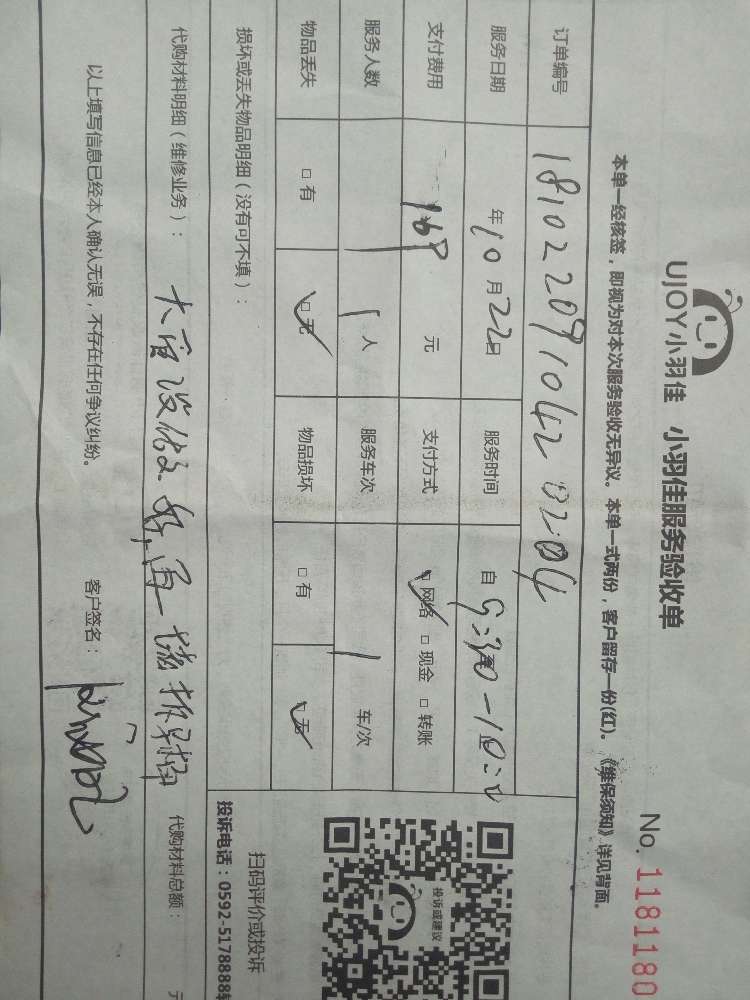 UJOY小羽佳 小羽佳服务验收单
No. 1181180
本单一经核签，即视为对本次服务验收无异议。本单一式两份，客户留存一份(红)。《维保须知》详见背面。
订单编号 18102209104203204
服务日期 年10月22日 服务时间 自
支付费用 168 元 支付方式 ☑网络 □现金 □转账
服务人数 1人 服务车次 1 车/次
物品丢失 □有 ☑无 物品损坏 □有 ☑无
损坏或丢失物品明细（没有可不填）：
投诉或建议
扫码评价或投诉
投诉电话：0592-5178888转
代购材料明细（维修业务）：
代购材料总额： 元
以上填写信息已经本人确认无误，不存在任何争议纠纷。 客户签名：